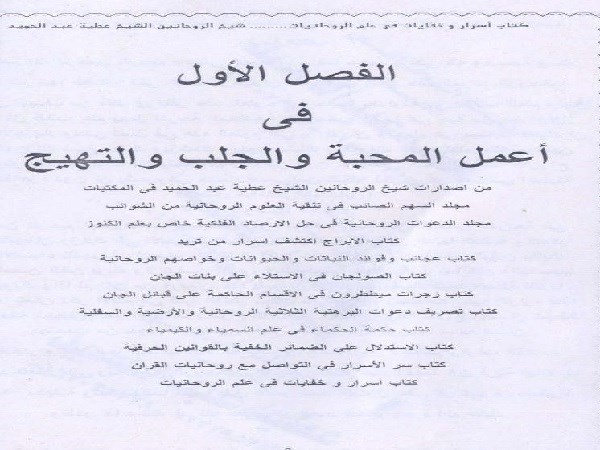 كتاب أسرار و خفايات في علم الروحانيات ........ شيخ الروحانين الشيخ عطية عبد الحميد
الفصل الأول
فى
أعمل المحبة والجلب والتهيج
من اصدارات شيخ الروحانين الشيخ عطية عبد الحميد فى المكتبات
مجلد السهم الصائب فى تنقية العلوم الروحانية من الشوائب
مجلد الدعوات الروحانية فى حل الارصاد الفلكية خاص بعلم الكنوز
كتاب الابراج اكتشف اسرار من تريد
كتاب عجائب وفوائد النباتات والحيوانات وخواصهم الروحانية
كتاب الصولجان فى الاستلاء على بنات الجان
كتاب زجرات ميططرون فى الاقسام الحاكمة على قبائل الجان
كتاب تصريف دعوات البرهتية الثلاثية الروحانية والأرضية والسفلية
كتاب حكمة الحكماء فى علم السمياء والكيمياء
كتاب الاستدلال على الضمائر الخفية بالقوانين الحرفية
كتاب سر الأسرار فى التواصل مع روحانيات القران
كتاب اسرار و خفايات فى علم الروحانيات